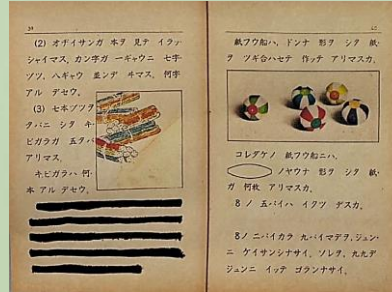 (2) オヂイサンガ 本ヲ 見テ イラッ
シャイマス。カン字ガ 一ギャウニ 七字
ヅツ、八ギャウ 並ンデ ヰマス。何字
アル デセウ。
(3) 七本ヅツヲ
タバニ シタ キ
ビガラガ 五タバ
アリマス。
キビガラハ 何
本 アル デセウ。
紙フウ船ハ、ドンナ 形ヲ シタ 紙
ヲ ツギ合ハセテ 作ッテ アリマスカ。
コレダケノ 紙フウ船ニハ、
ノヤウナ 形ヲ シタ 紙
ガ 何枚 アリマスカ。
8ノ 五バイハ イクツ デスカ。
8ノ 二バイカラ 九バイマデヲ、ジュン
ニ ケイサンシナサイ。ソレヲ、九九デ
ジュンニ イッテ ゴランナサイ。